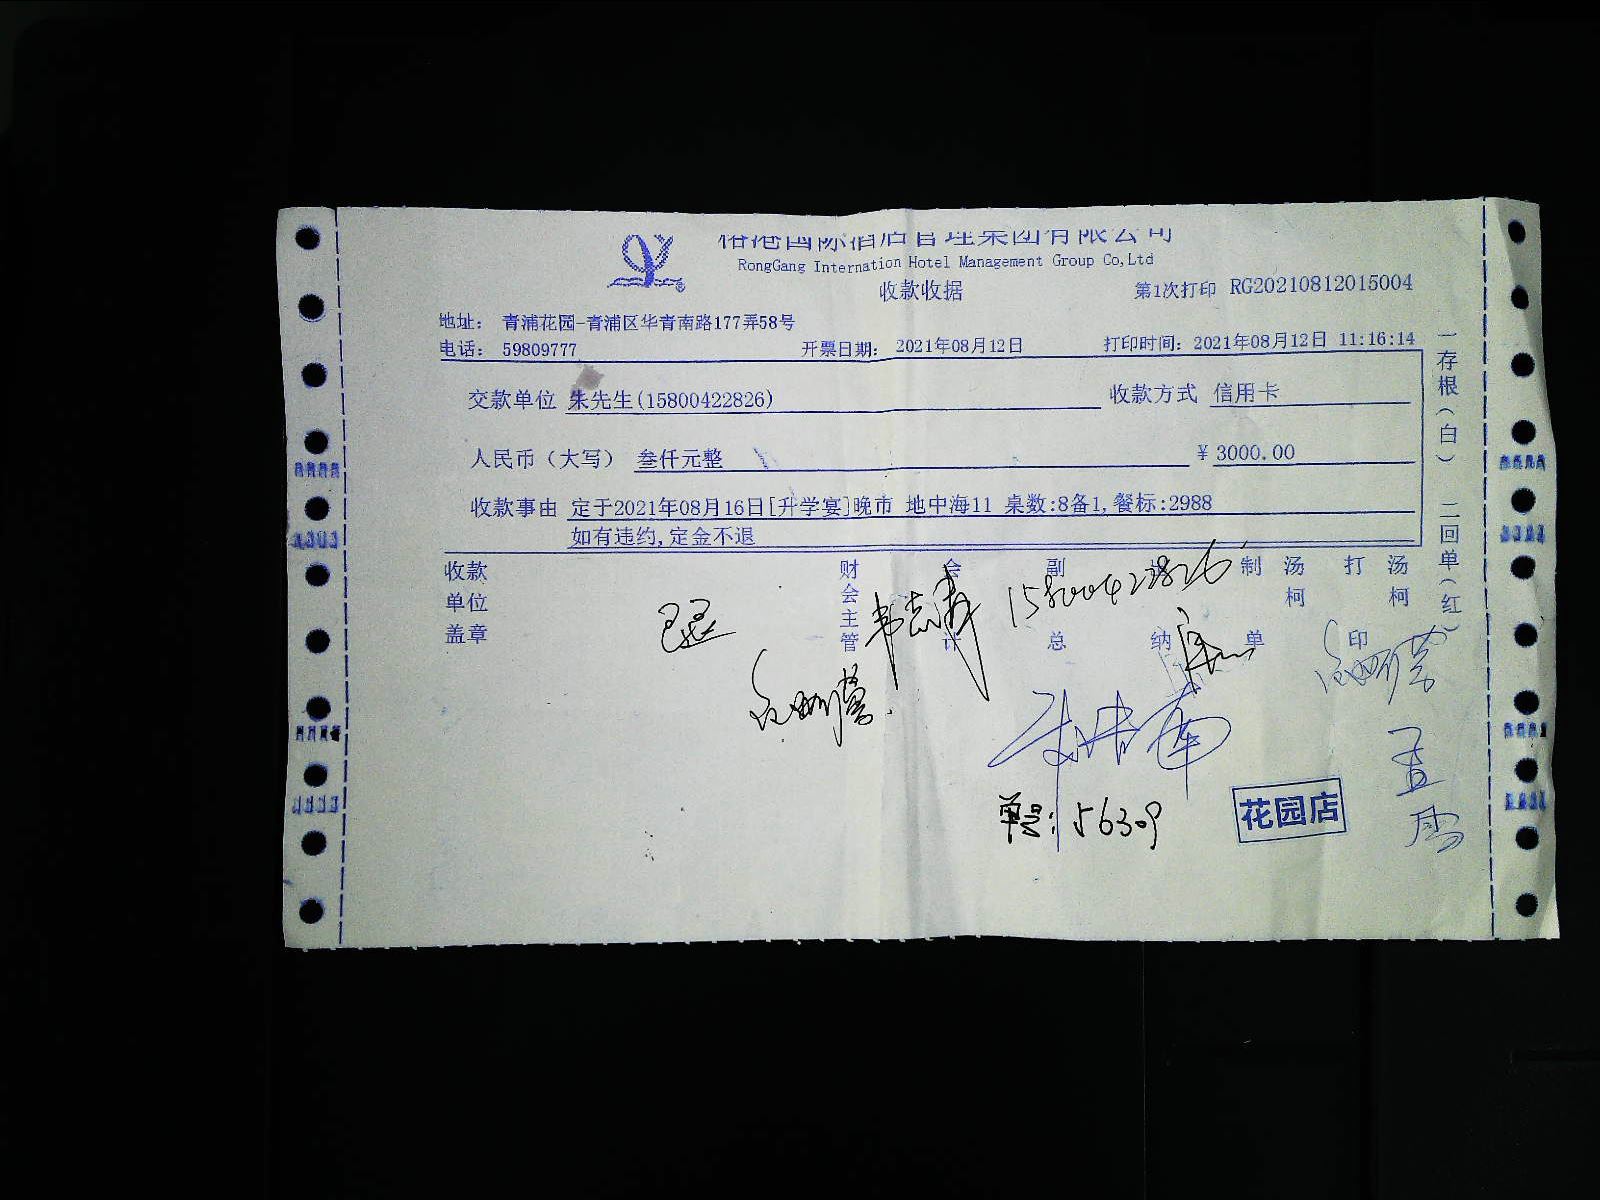 榕港国际酒店管理集团有限公司
RongGang Internation Hotel Management Group Co,Ltd
收款收据
第1次打印 RG20210812015004
地址: 青浦花园-青浦区华青南路177弄58号
电话: 59809777 开票日期: 2021年08月12日 打印时间: 2021年08月12日 11:16:14
交款单位 朱先生(15800422826) 收款方式 信用卡
人民币（大写） 叁仟元整 ¥ 3000.00
收款事由 定于2021年08月16日[升学宴]晚市 地中海11 桌数:8备1,餐标:2988
如有违约,定金不退
收款单位盖章 财会主管 会计 副总 纳 制单 汤柯 打印 汤柯
一存根(白) 二回单(红)
已退
15800422826
单号: 56309
花园店